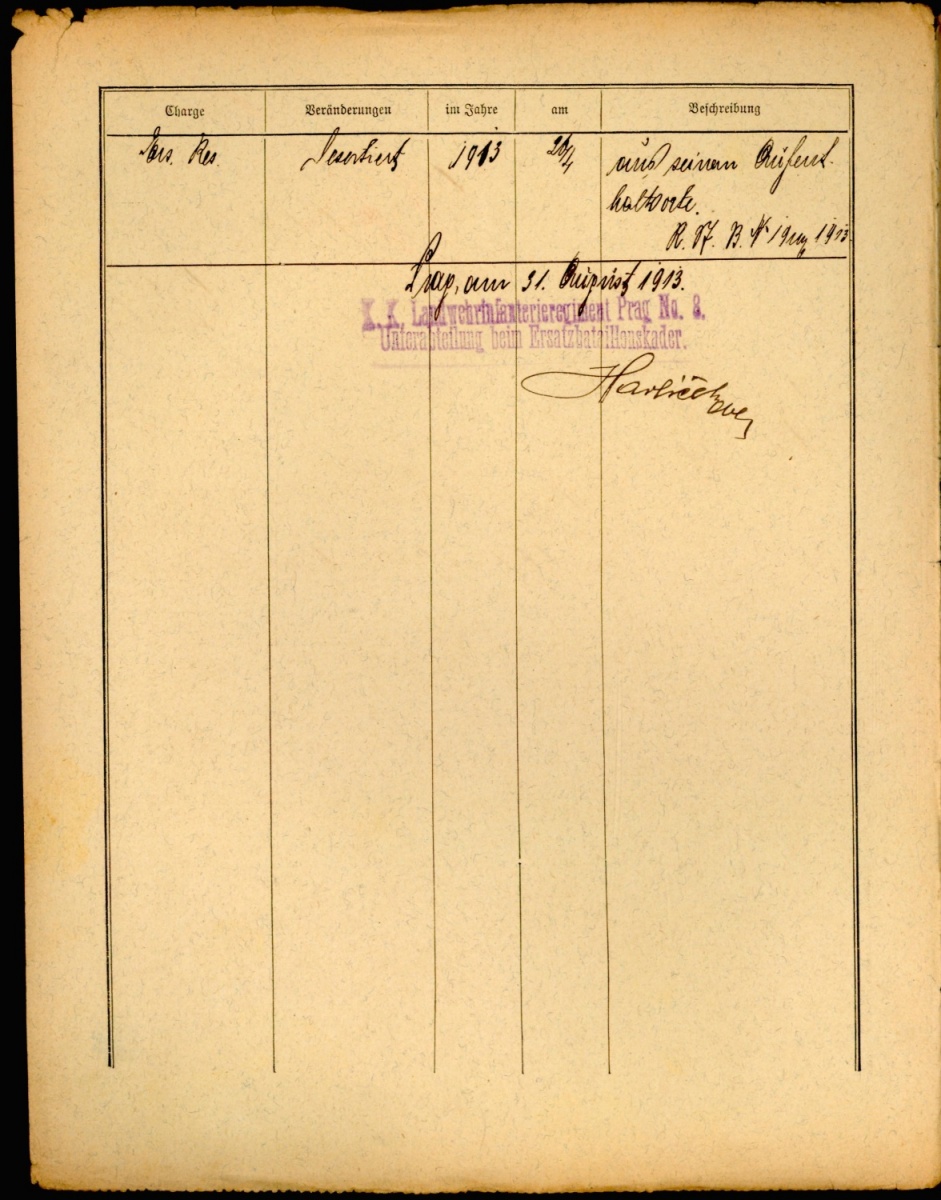 Charge Veränderungen im Jahre am Beschreibung
Ers. Res. Desertiert 1913 26/4 aus seinem Aufent-
haltsorte.
R. B. № 19 1913
Prag, am 31. August 1913.
K. K. Landwehrinfanterieregiment Prag No. 8.
Unterabteilung beim Ersatzbataillonskader.